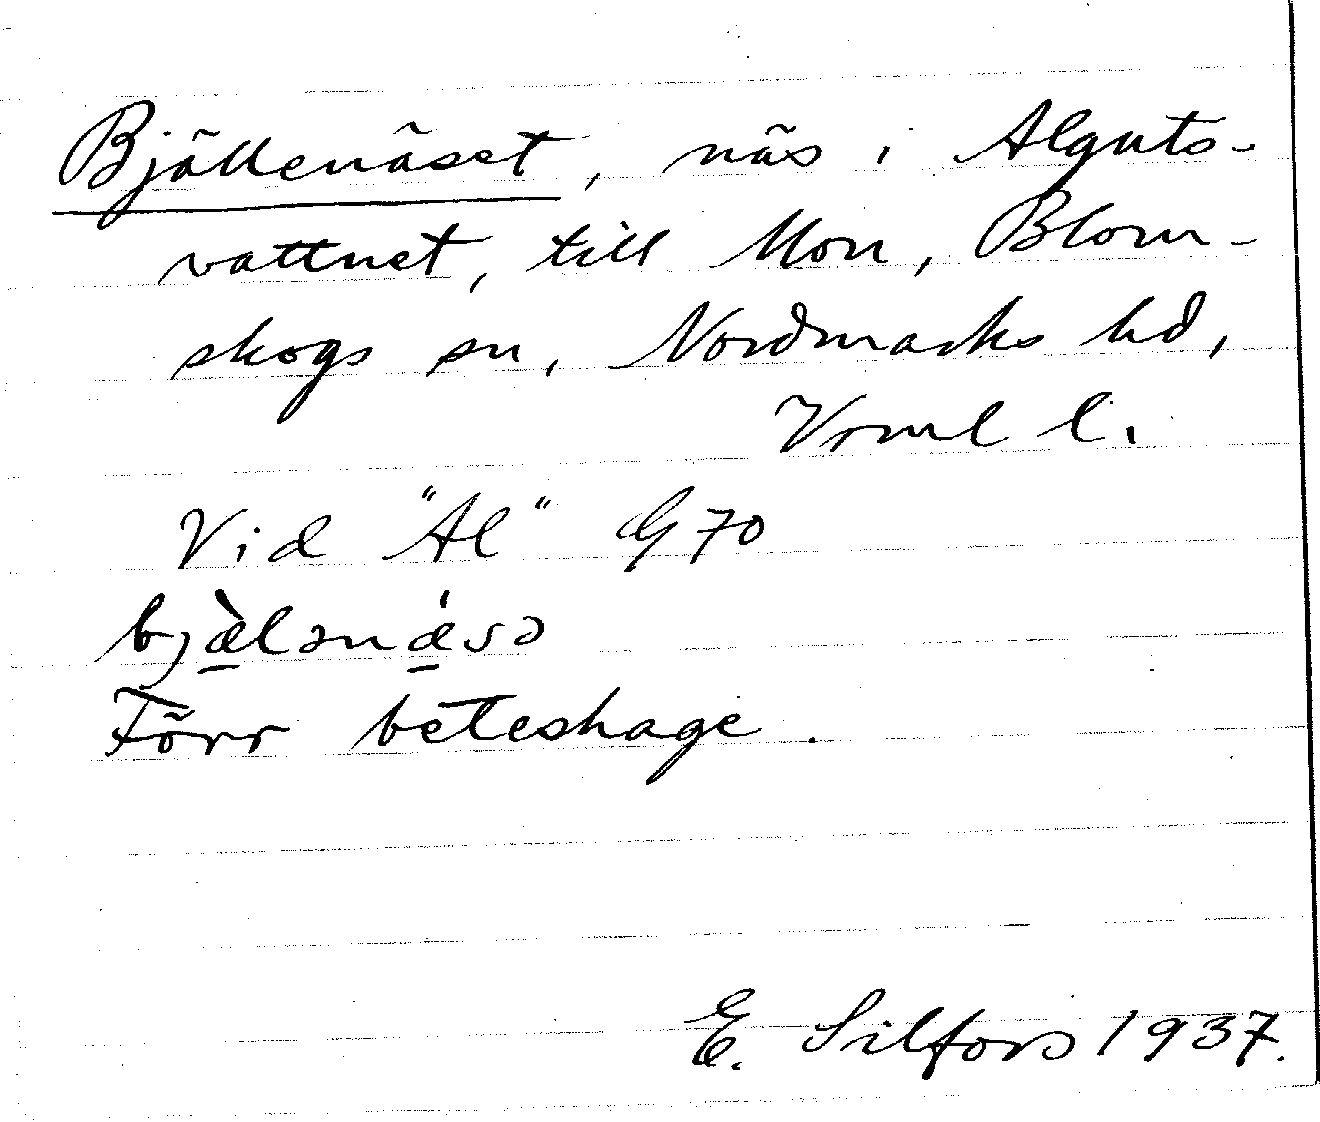 Bjällenäset, näs i Alguts-
vattnet, till Mon, Blom-
skogs sn, Nordmarks hd,
Vrml l.
Vid "Al" G 70
bjæ̱̀lənǽ̱sə
Förr beteshage.
E. Silfors 1937.